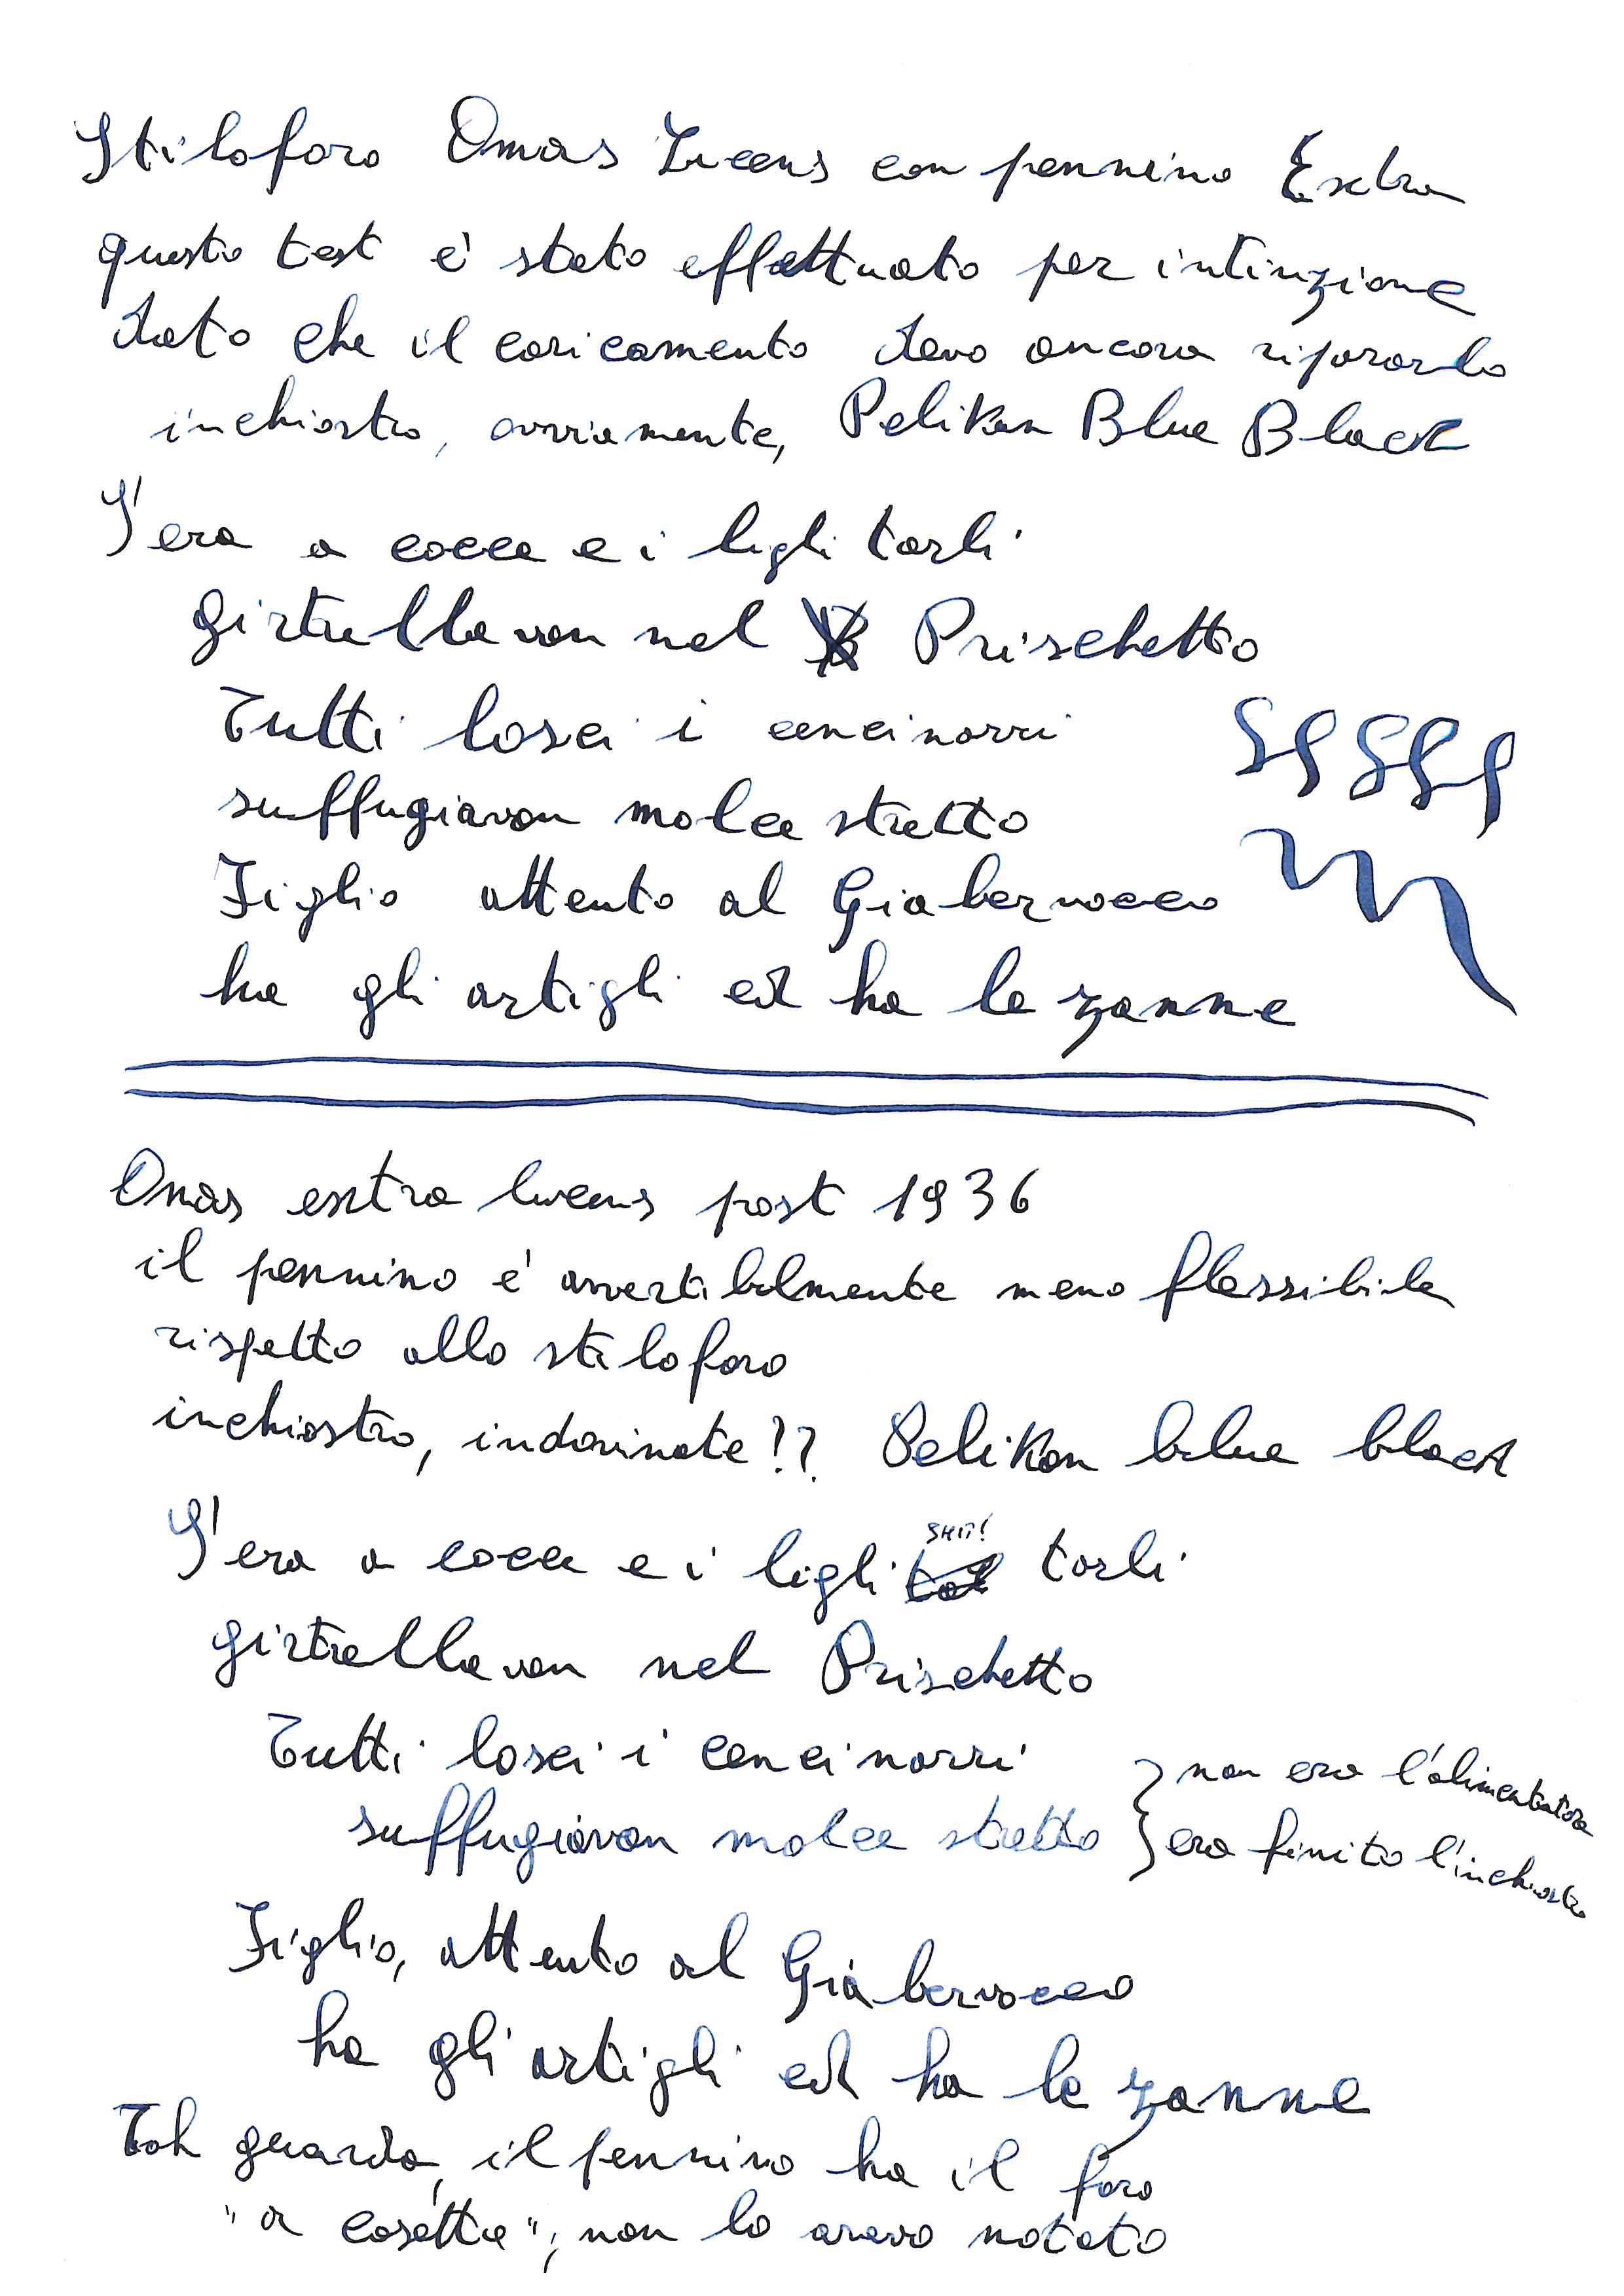 Stiloforo Omas Lucens con pennino Extra
questo test è stato effettuato per intinzione
dato che il caricamento devo ancora ripararlo
inchiostro, ovviamente, Pelikan Blue Black
S'era a cocce e i ligli tarli
girtrellavan nel Prischetto
Tutti losci i cencinarri
suffugiavan molce stretto
Figlio attento al Giabervocco
ha gli artigli ed ha le zanne
Omas extra lucens post 1936
il pennino è avvertibilmente meno flessibile
rispetto allo stiloforo
inchiostro, indovinate!? Pelikan blue black
SHIT!
S'era a cocce e i ligli tarli
girtrellavan nel Prischetto
Tutti losci i cencinarri } non era l'alimentatore
suffugiavan molce stretto } era finito l'inchiostro
Figlio, attento al Giabervocco
ha gli artigli ed ha le zanne
Toh guarda, il pennino ha il foro
"a casetta", non lo avevo notato